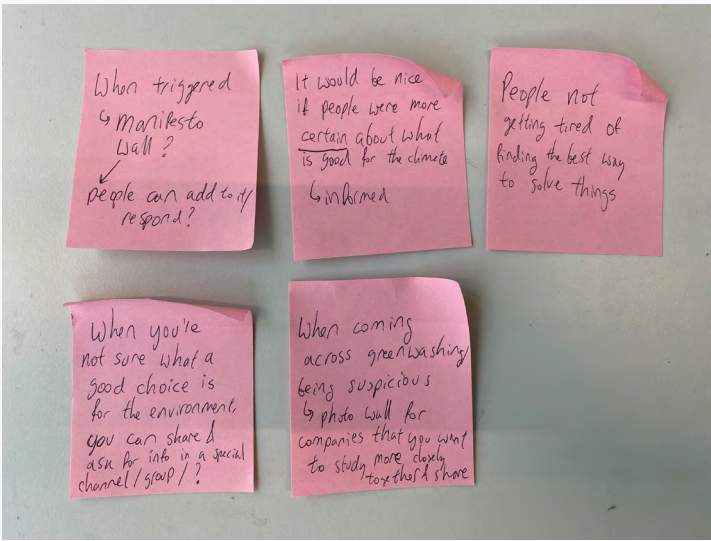 When triggered
↳ manifesto
wall?
people can add to it/
respond?
It would be nice
if people were more
certain about what
is good for the climate
↳ informed
People not
getting tired of
finding the best way
to solve things
When you're
not sure what a
good choice is
for the environment,
you can share &
ask for info in a special
channel/group/?
When coming
across greenwashing/
being suspicious
↳ photo wall for
companies that you want
to study more closely
together & share